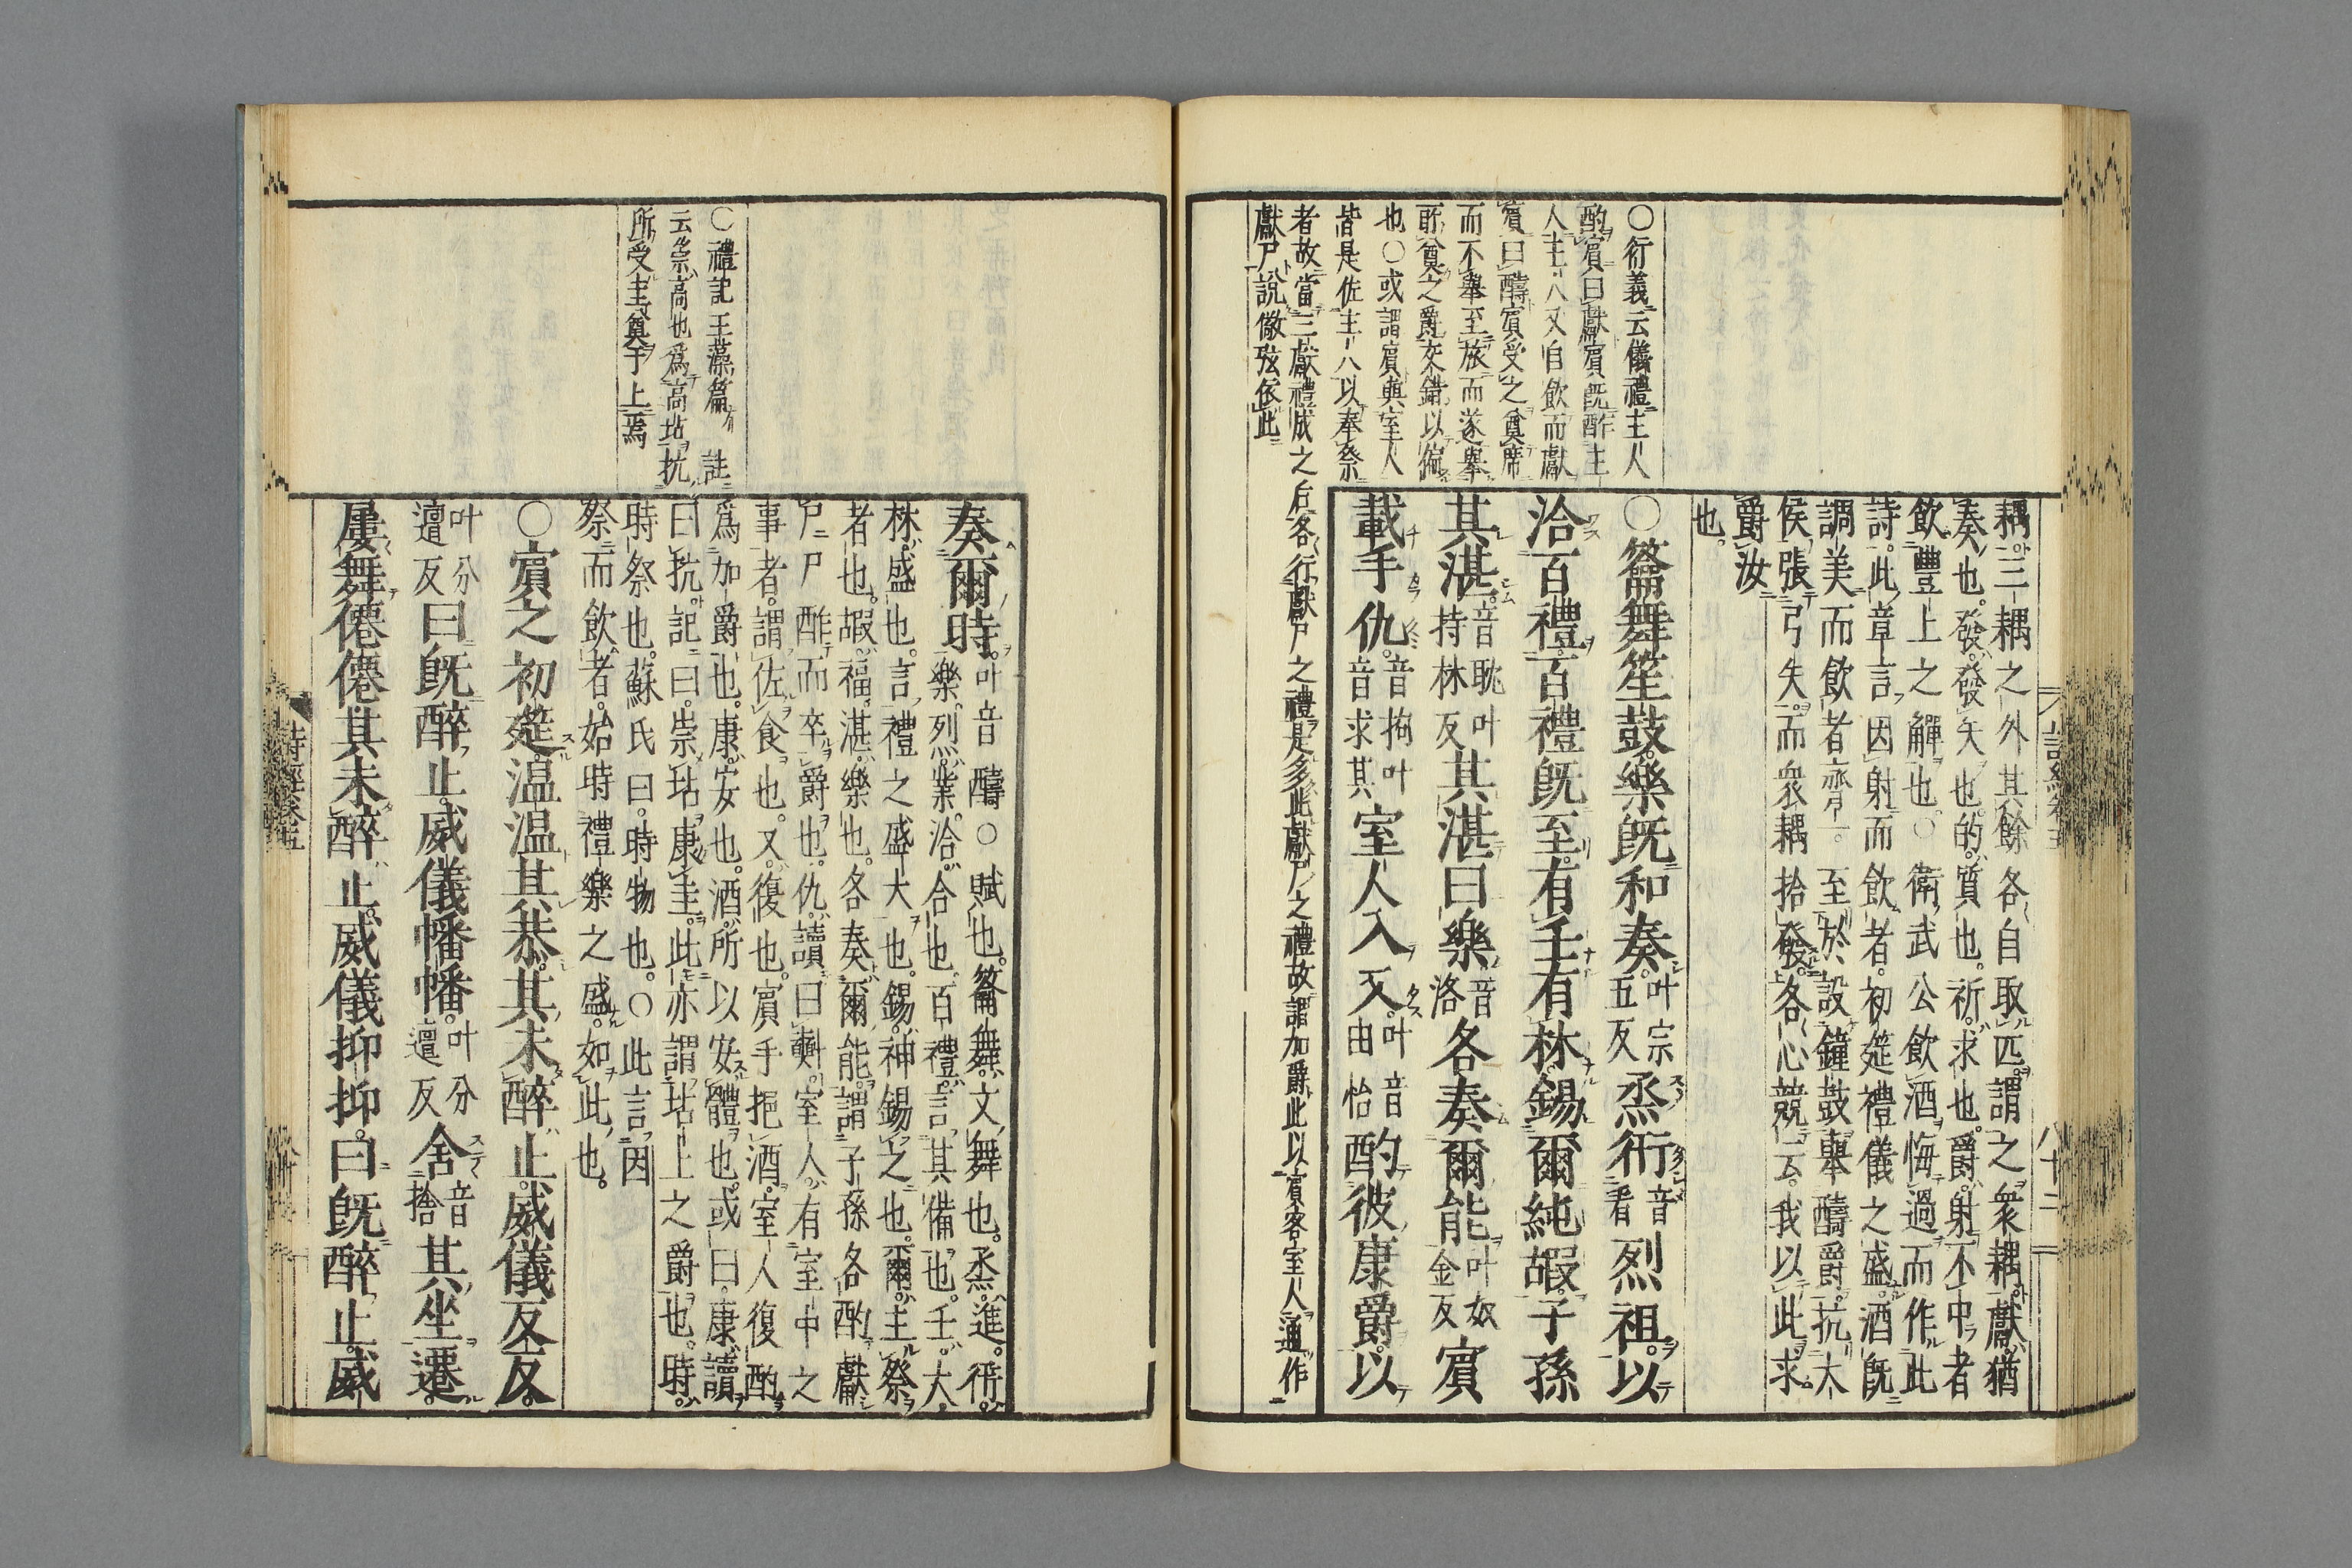 耦。三耦之外其餘各自取匹。謂之衆耦。獻。猶
奏也。發。發矢也。的。質也。祈。求也。爵。射不中者
飲豐上之觶也。○衛武公飲酒悔過而作此
詩。此章言因射而飲者。初筵禮儀之盛。酒既
調美而飲者齊一。至於設鐘鼓舉醻爵。抗大
侯張弓矢。而衆耦拾發。各心競云。我以此求
爵汝
也。
○籥舞笙鼓。樂既和奏。叶宗五反烝衎音看烈祖。以
洽百禮。百禮既至。有壬有林。錫爾純嘏。子孫
其湛。音耽叶持林反其湛曰樂。音洛各奏爾能叶奴金反賓
載手仇。音拘叶音求其室人入又。叶音由怡酌彼康爵。以
○衍義云儀禮主人
酌賓曰獻賓既酢主
人主人又自飲而獻
賓曰醻賓受之奠席
而不舉至旅而遂舉
所奠之爵交錯以徧
也○或謂賓與室人
皆是佐主人以奉祭
者故當三獻禮成之后各行獻尸之禮是多此獻尸之禮故謂加爵此以賓客室人通作
獻尸說儆弦依此
奏爾時。叶音醻○賦也。籥舞。文舞也。烝。進。衎。
樂。烈。業。洽。合也。百禮。言其備也。壬。大。
林。盛也。言禮之盛大也。錫。神錫之也。爾。主祭
者也。嘏。福。湛。樂也。各奏爾能。謂子孫各酌獻
尸尸酢而卒爵也。仇。讀曰𣂏。室人。有室中之
事者。謂佐食也。又。復也。賓手挹酒。室人復酌
爲加爵也。康。安也。酒。所以安體也。或曰。康。讀
曰抗。記曰。崇坫康圭。此亦謂坫上之爵也。時。
時祭也。蘇氏曰。時物也。○此言因
祭而飲者。始時禮樂之盛。如此也。
○賓之初筵。温温其恭。其未醉止。威儀反反。
叶分邅反曰既醉止。威儀幡幡。叶分邅反舍音捨其坐遷。
屢舞僊僊。其未醉止。威儀抑抑。曰既醉止。威
○禮記玉藻篇有註
云崇高也爲高坫抗
所受圭奠于上焉
詩經卷五